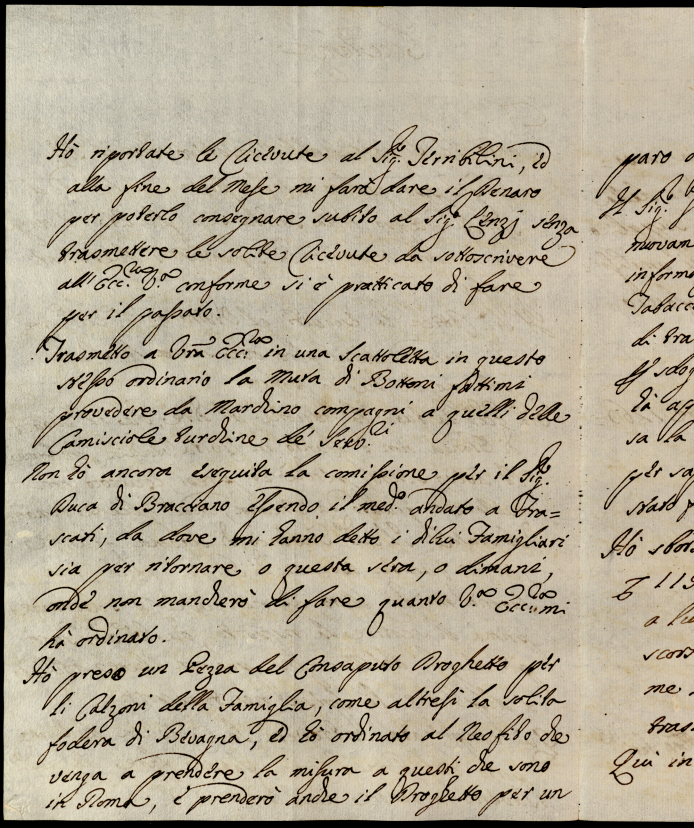 Hò riportate le Ricevute al Sig.re Terribilini, ed
alla fine del Mese mi farà dare il Denaro
per poterlo consegnare subito al Sig.re Lenzj senza
trasmettere le solite Ricevute da sottoscrivere
all' Ecc.za V.ra conforme si è pratticato di fare
per il passato.
Trasmetto a Vra Ecc.za in una Scattoletta in questo
stesso ordinario la Muta di Bottoni fattimi
provedere da Marchino compagni a quelli delle
Camisciole turchine de' Serv.ri
Non hò ancora eseguita la comissione per il Sig.re
Duca di Bracciano essendo il med.o andato a Fra=
scati, da dove mi hanno detto i di lui Famigliari
sia per ritornare o questa sera, o dimani,
onde non mancherò di fare quanto V.ra Ecc.za mi
hà ordinato.
Hò preso un Pezza del Consaputo Droghetto per
li Calzoni della Famiglia, come altresì la solita
fodera di Bevagna, ed hò ordinato al Neofito che
venga a prendere la misura a questi che sono
in Roma, e prenderò anche il Droghetto per un
paro
Il Sig.
nuovam
informa
Tabacc
di tra
sa la
per sa
stato
Hò sbor
a lu
scors
me
tras
Qui in